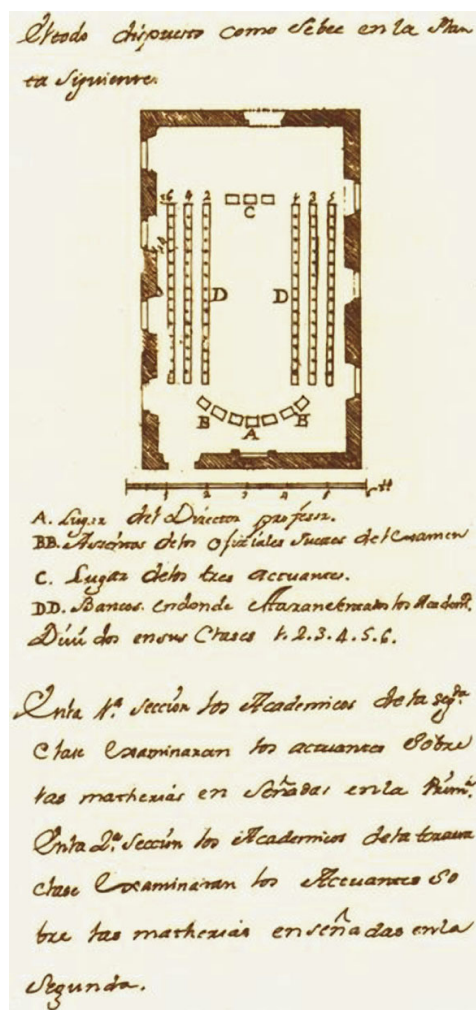 El todo dispuesto como se bee en la Plan
ta siguiente.
6 4 2 1 3 5
C
D D
B A B
1 2 3 4 5
A. Lugar del Director profesor.
BB. Assientos de los Ofiziales Jueces del Examen
C. Lugar delos tres actuantes.
DD. Bancos en donde los Academ.
Divi dos en sus Clases 1. 2. 3. 4. 5. 6.
En la 1ª. Sección los Academicos de la segda.
Clase Examinaran los actuantes Sobre
las matherias en señadas en la Prim.
En la 2ª. Sección los Academicos dela tercera
Clase Examinaran los Actuantes So
bre las matherias enseñadas en la
Segunda.